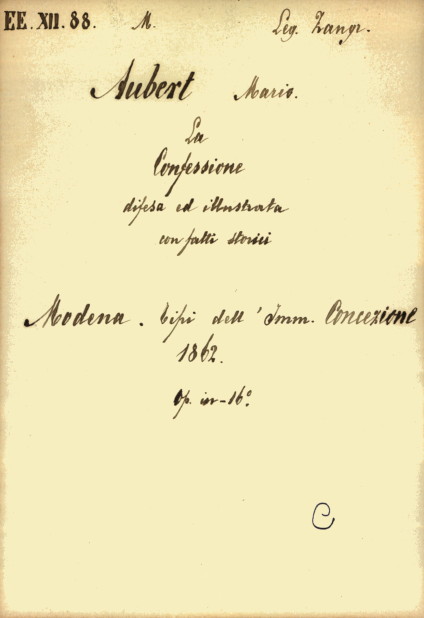 EE. XII. 88. M. Leg. Zangr.
Aubert Mario.
La
Confessione
difesa ed illustrata
con fatti storici
Modena. Tipi dell' Imm. Concezione
1862.
Op. in-16°.
C